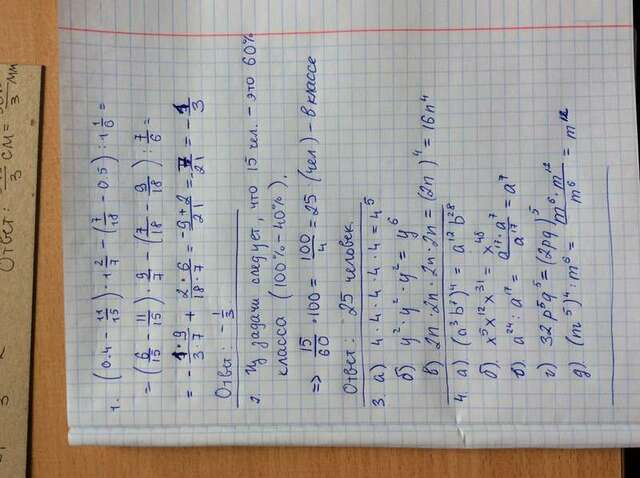 Ответ: см = мм
1. (0.4 - 11/15) · 1 2/7 - (7/18 - 0.5) : 1 1/6 =
= (6/15 - 11/15) · 9/7 - (7/18 - 9/18) : 7/6 =
= - 1·9/3·7 + 2·6/18·7 = -9+2/21 = -7/21 = -1/3
Ответ: -1/3
2. Из задачи следует, что 15 чел. - это 60%
класса (100% - 40%).
=> 15/60 · 100 = 100/4 = 25 (чел) - в классе
Ответ: 25 человек.
3. а) 4 · 4 · 4 · 4 · 4 = 4^5
б) y^2 · y^2 · y^2 = y^6
в) 2n · 2n · 2n · 2n = (2n)^4 = 16n^4
4. а) (a^3 b^7)^4 = a^12 b^28
б) x^5 x^12 x^31 = x^48
в) a^24 : a^17 = a^17 · a^7/a^17 = a^7
г) 32 p^5 q^5 = (2pq)^5
д) (m^5)^4 : m^6 = m^6 · m^12/m^6 = m^12